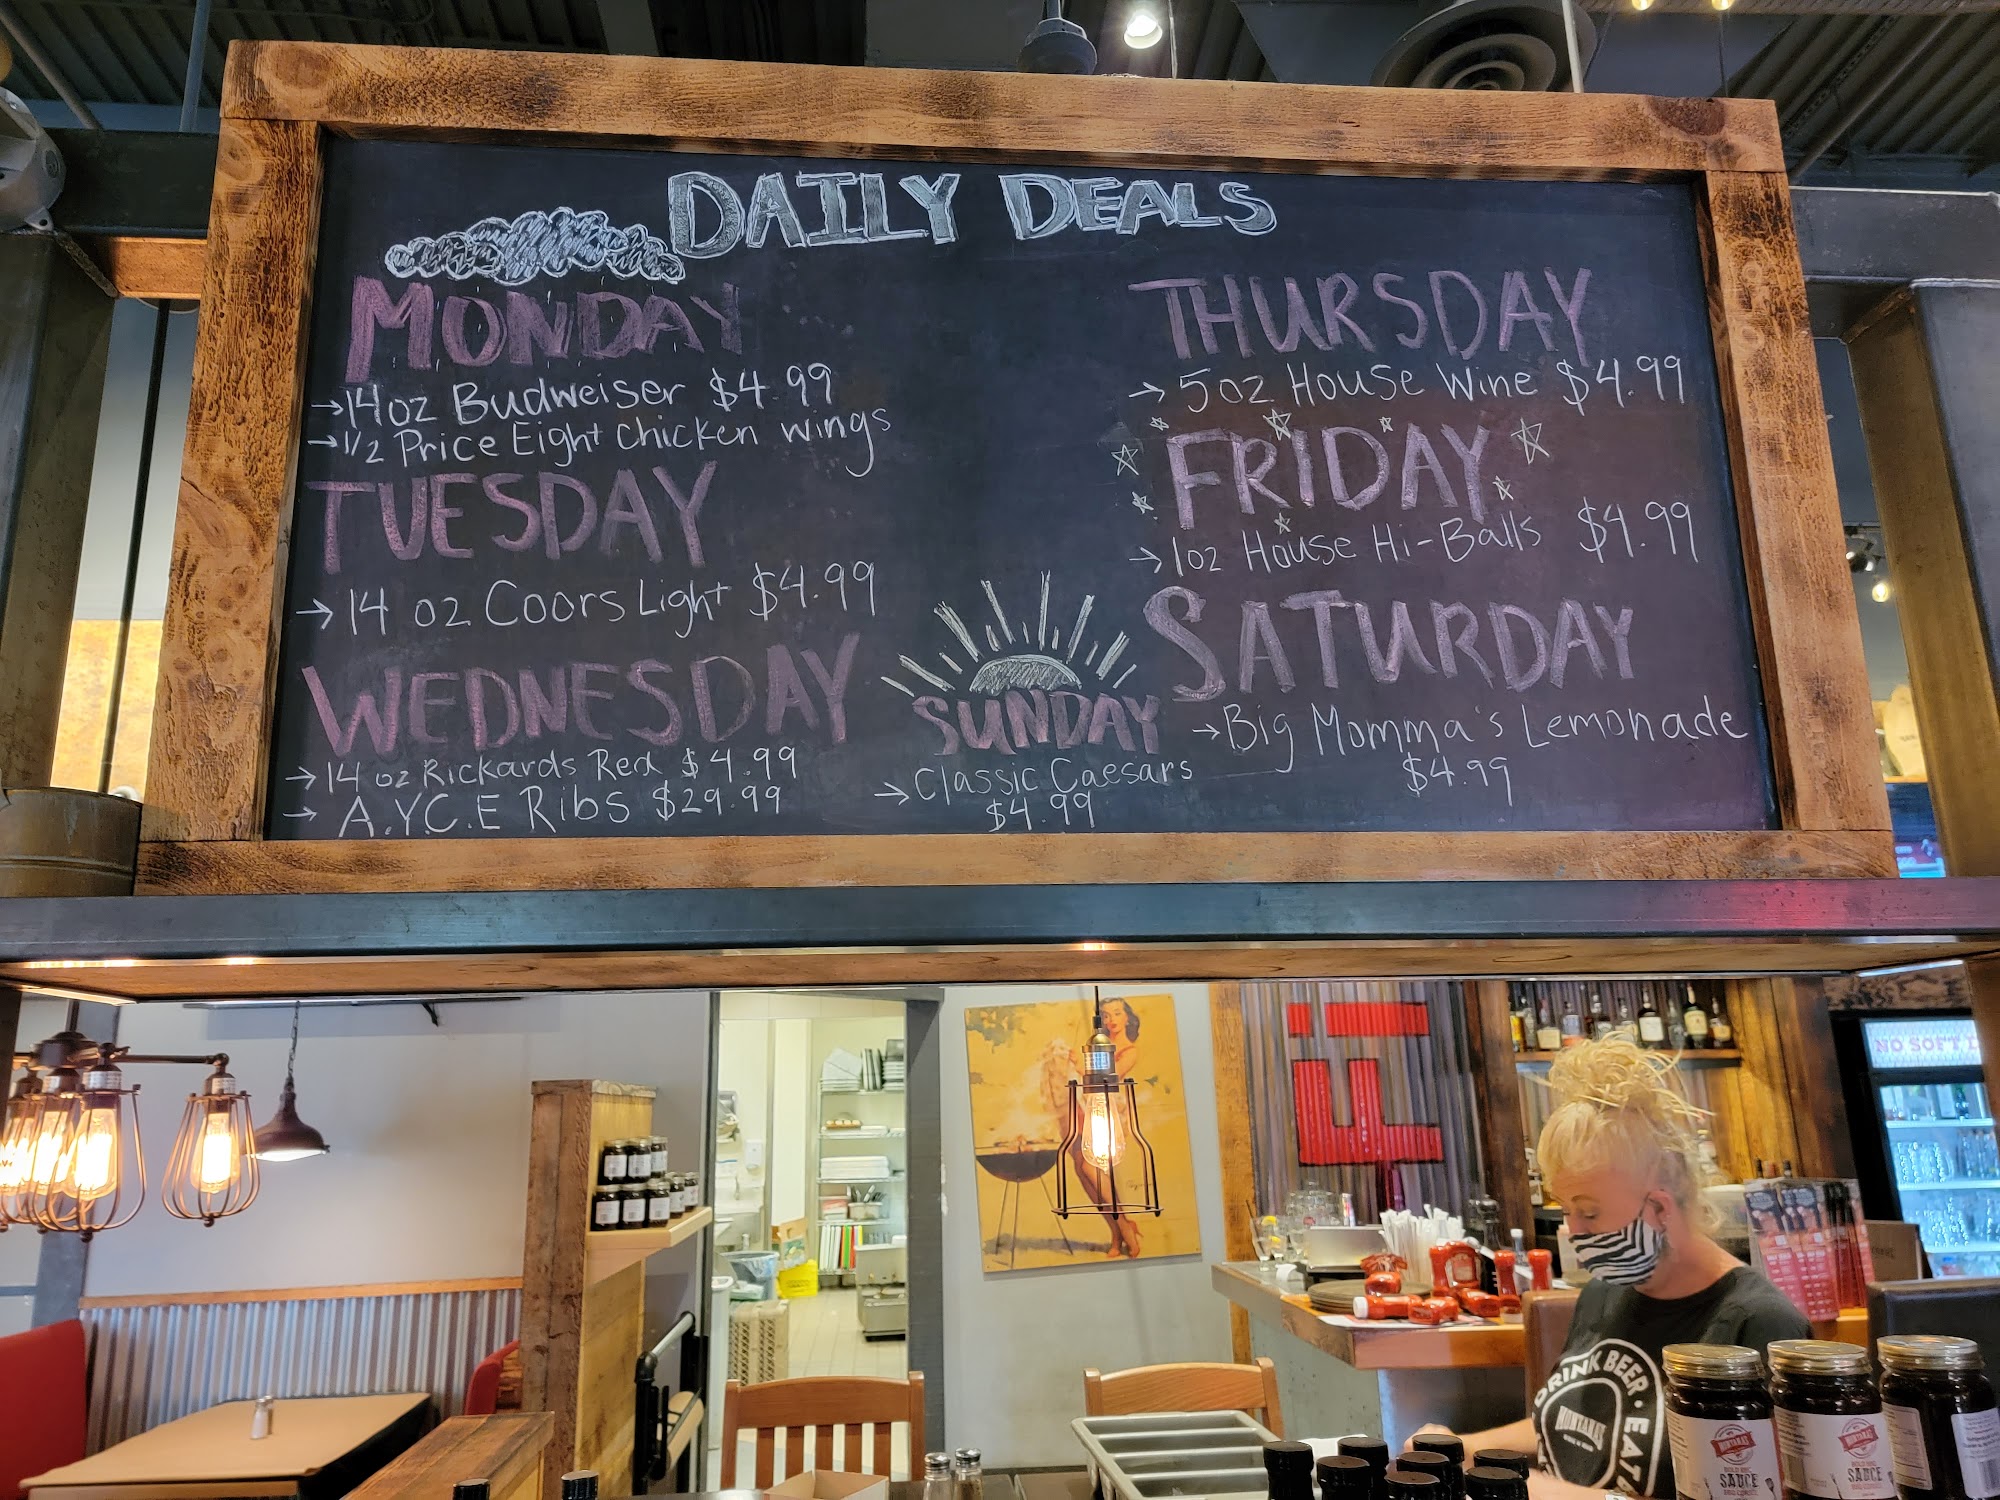 DAILY DEALS
MONDAY
→14oz Budweiser $4.99
→1/2 Price Eight chicken wings
TUESDAY
→14 oz Coors Light $4.99
WEDNESDAY
→14 oz Rickards Red $4.99
→ A.Y.C.E Ribs $29.99
SUNDAY
→ Classic Caesars
$4.99
THURSDAY
→ 5oz House Wine $4.99
FRIDAY
→1oz House Hi-Balls $4.99
SATURDAY
→Big Momma's Lemonade
$4.99
NO SOFT
DRINK BEER · EAT
MONTANA'S
MONTANA'S
SAUCE
MONTANA'S
SAUCE